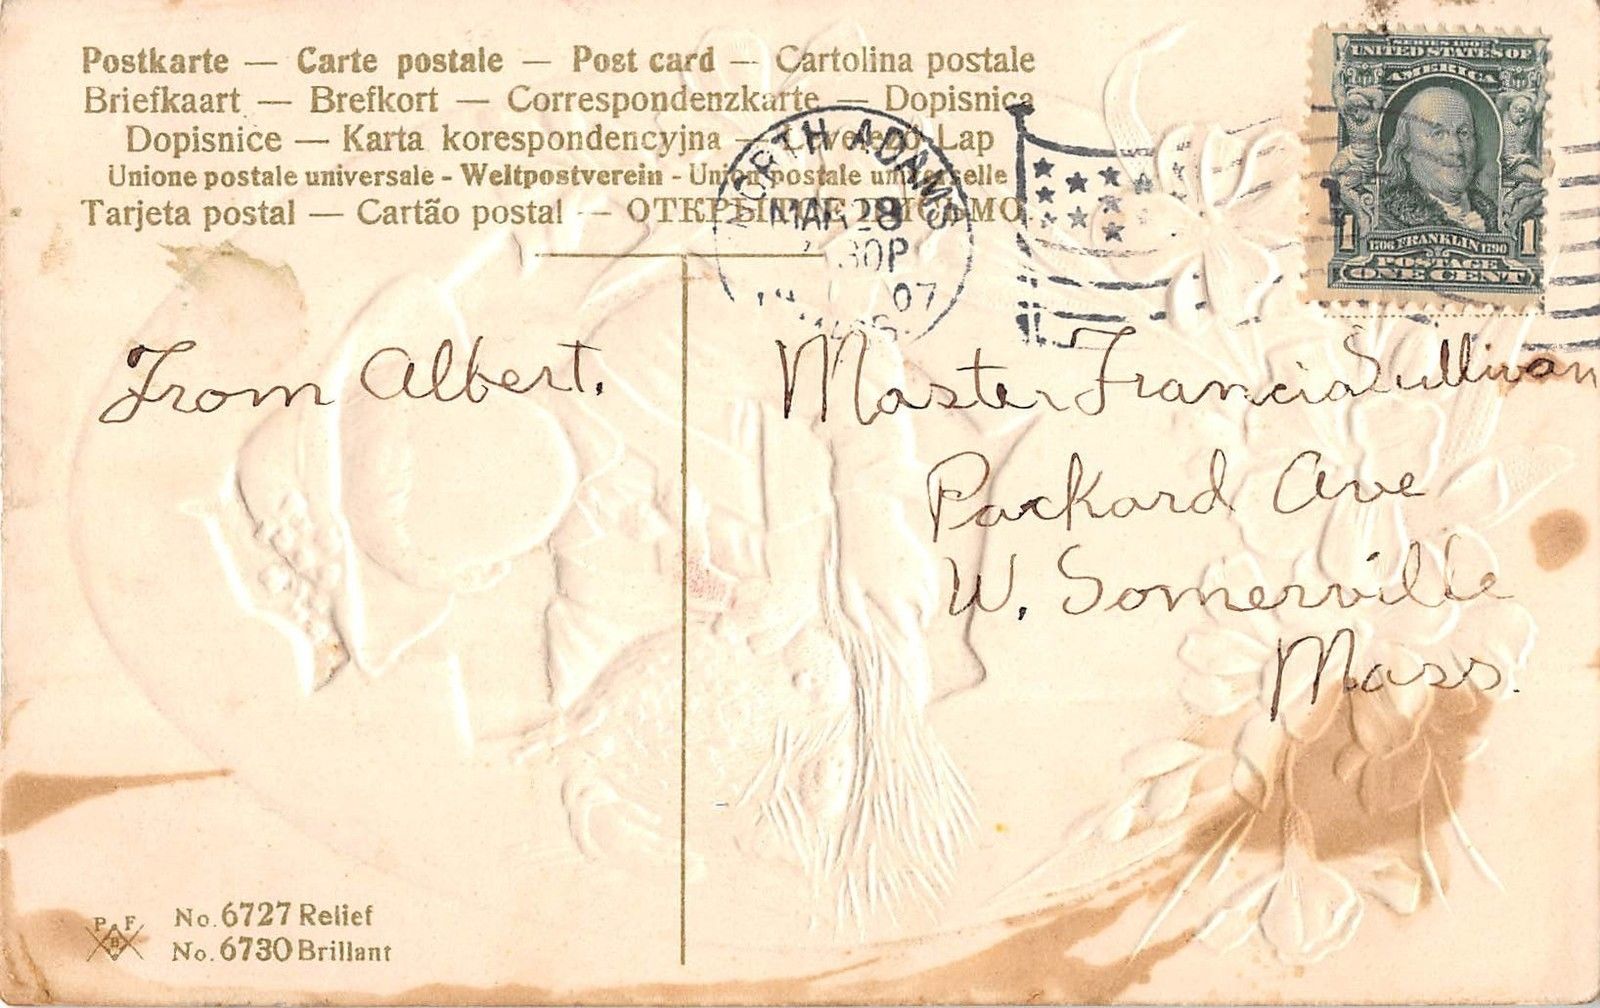 Postkarte — Carte postale — Post card — Cartolina postale
Briefkaart — Brefkort — Correspondenzkarte — Dopisnica
Dopisnice — Karta korespondencyjna — Levelező-Lap
Unione postale universale - Weltpostverein - Union postale universelle
Tarjeta postal — Cartão postal — ОТКРЫТОЕ ПИСЬМО
NORTH ADAMS
MAR 28
30P
07
MASS.
SERIES 1902
UNITED STATES OF
AMERICA
1 1706 FRANKLIN 1790 1
POSTAGE
ONE CENT
From Albert.
Master Francis Sullivan
Packard Ave
W. Somerville
Mass.
P F
B
No. 6727 Relief
No. 6730 Brillant